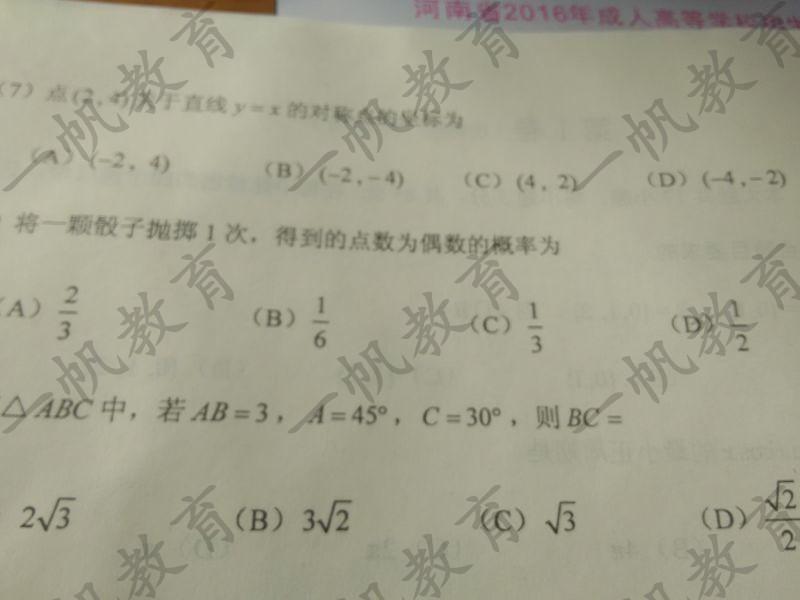 河南省2016年成人高等学校招生
(7) 点(2, 4)关于直线 y = x 的对称点的坐标为
(A) (−2, 4) (B) (−2, −4) (C) (4, 2) (D) (−4, −2)
将一颗骰子抛掷 1 次，得到的点数为偶数的概率为
(A) 2/3 (B) 1/6 (C) 1/3 (D) 1/2
△ABC 中，若 AB = 3，A = 45°，C = 30°，则 BC =
2√3 (B) 3√2 (C) √3 (D) √2/2
一帆教育
一帆教育
一帆教育
一帆教育
一帆教育
一帆教育